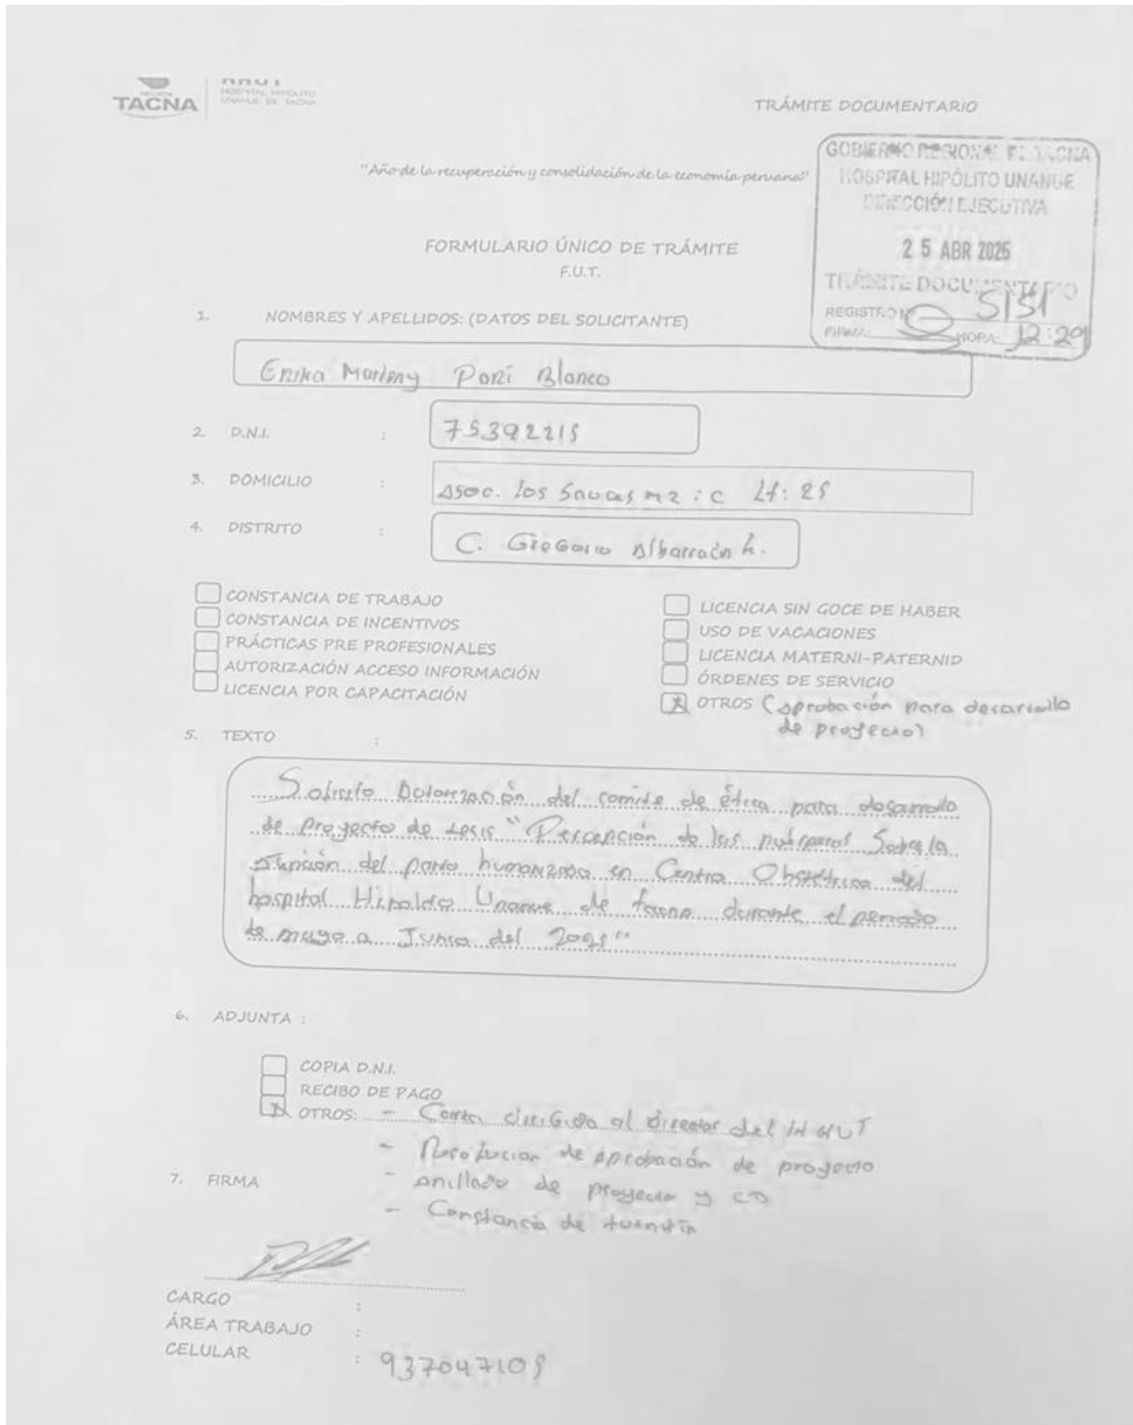 REGIÓN
TACNA
HHUT
HOSPITAL HIPÓLITO
UNANUE DE TACNA
TRÁMITE DOCUMENTARIO
GOBIERNO REGIONAL DE TACNA
HOSPITAL HIPÓLITO UNANUE
DIRECCIÓN EJECUTIVA
25 ABR 2025
TRÁMITE DOCUMENTARIO
REGISTRO Nº 5151
FIRMA: HORA: 12:29
"Año de la recuperación y consolidación de la economía peruana"
FORMULARIO ÚNICO DE TRÁMITE
F.U.T.
1. NOMBRES Y APELLIDOS: (DATOS DEL SOLICITANTE)
Erika Marleny Pari Blanco
2. D.N.I. : 75392215
3. DOMICILIO : Asoc. los Sauces Mz : C Lt: 25
4. DISTRITO : C. Gregorio Albarracín L.
CONSTANCIA DE TRABAJO
CONSTANCIA DE INCENTIVOS
PRÁCTICAS PRE PROFESIONALES
AUTORIZACIÓN ACCESO INFORMACIÓN
LICENCIA POR CAPACITACIÓN
LICENCIA SIN GOCE DE HABER
USO DE VACACIONES
LICENCIA MATERNI-PATERNID
ÓRDENES DE SERVICIO
X OTROS (aprobación para desarrollo
de proyecto)
5. TEXTO :
Solicito Autorización del comite de ética para desarrollo
de proyecto de tesis "Percepción de las puérperas Sobre la
atención del parto humanizado en Centro Obstétrico del
hospital Hipolito Unanue de tacna durante el periodo
de mayo a Junio del 2025"
6. ADJUNTA :
COPIA D.N.I.
RECIBO DE PAGO
X OTROS: - Carta dirigida al director del HHUT
- Resolucion de aprobación de proyecto
- anillado de proyecto y CD
- Constancia de turnitin
7. FIRMA
CARGO :
ÁREA TRABAJO :
CELULAR : 937047105